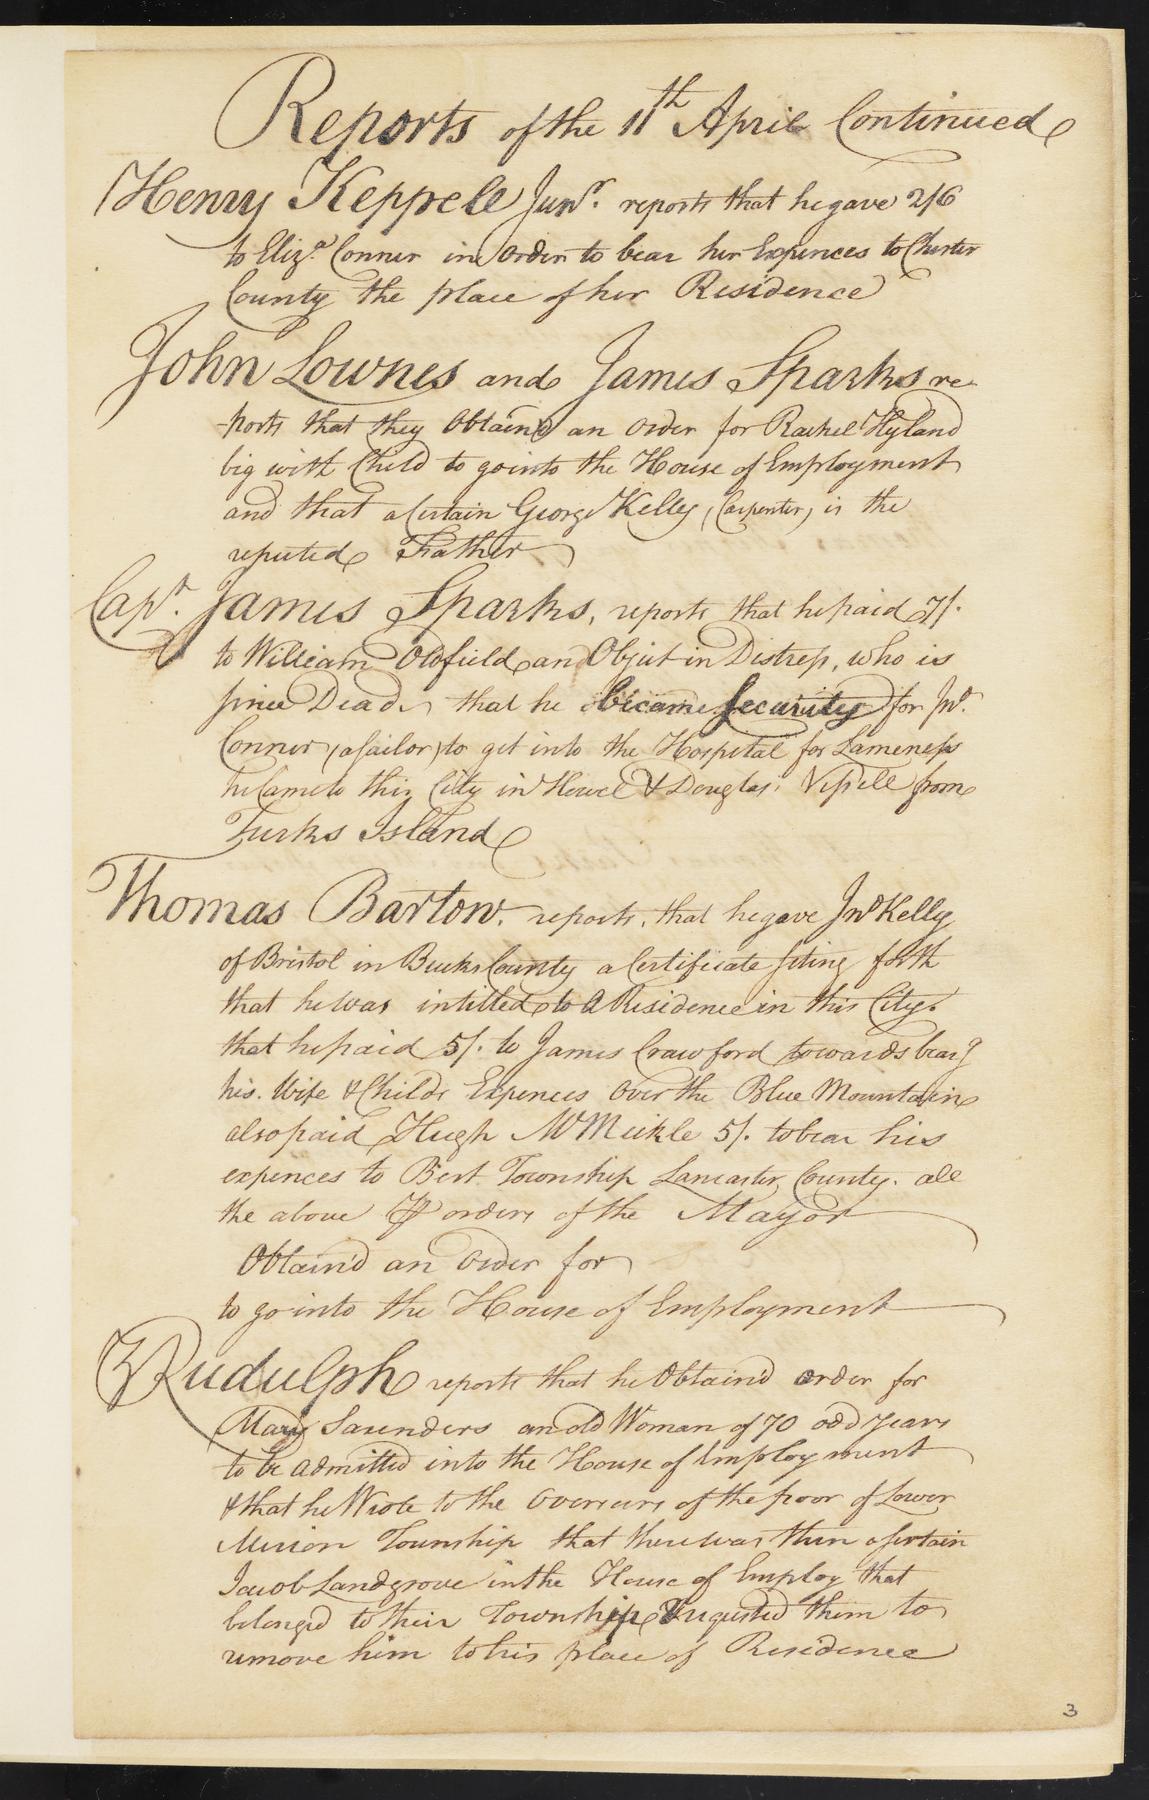 Reports of the 11th April Continued
Henry Keppele Junr. reports that he gave 2/6
to Eliza. Conner in order to bear her Expences to Chester
County the place of her Residence
John Lownes and James Sparks re-
-ports that they Obtain'd an order for Rachel Hyland
big with Child to go into the House of Employment
and that a Certain George Kelly, (Carpenter) is the
reputed Father
Capt. James Sparks, reports that he paid 7/.
to William Oldfield an Object in Distress, who is
since Dead, that he became Security for Jno.
Conner, (a sailor) to get into the Hospital for Lameness
he Came to this City in Howel & Douglas' Vessell from
Turks Island
Thomas Bartow. reports, that he gave Jno Kelly
of Bristol in Bucks County a Certificate seting forth
that he was intitled to a Residence in this City.
that he paid 5/. to James Crawford towards bearg
his. Wife & Childr Expences over the Blue Mountain
also paid Hugh McMeikle 5/. to bear his
expences to Bert Township Lancaster County. all
the above ⅌ orders of the Mayor
Obtain'd an order for
to go into the House of Employment
Rudulph reports that he Obtain'd order for
Mary Saunders an old Woman of 70 odd years
to be admitted into the House of Employment
& that he Wrote to the Overseers of the poor of Lower
Merion Township that there was then a Certain
Jacob Landgrove in the House of Employ that
belonged to their Township & requested them to
remove him to his place of Residence
3